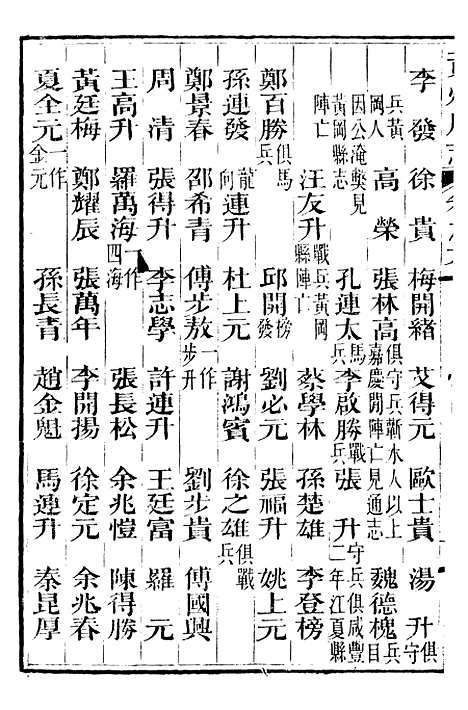 李 發 徐 貴 梅開緒 艾得元 歐士貴 湯 升俱守
兵黃岡人 高 榮 張林高俱守兵蘄水人以上嘉慶閒陣亡見通志 魏德槐兵目
因公淹斃見黃岡縣志 孔連太馬兵 李啟勝戰兵 張 升守兵俱咸豐二年江夏縣
陣亡 汪友升戰兵黃岡 蔡學林 孫楚雄 李登榜
鄭百勝俱馬兵 邱開榜發 劉必元 張福升 姚上元
孫連發 龍向連升 杜上元 謝鴻賓 徐之雄俱戰兵
鄭景春 邵希青 傅步敖一作步升 劉步貴 傅國興
周 清 張得升 李志學 許連升 王廷富 羅 元
王高升 羅萬海一作四海 張長松 余兆愷 陳得勝
黃廷梅 鄭耀辰 張萬年 李開揚 徐定元 余兆春
夏全元一作金元 孫長青 趙金魁 馬連升 秦昆厚